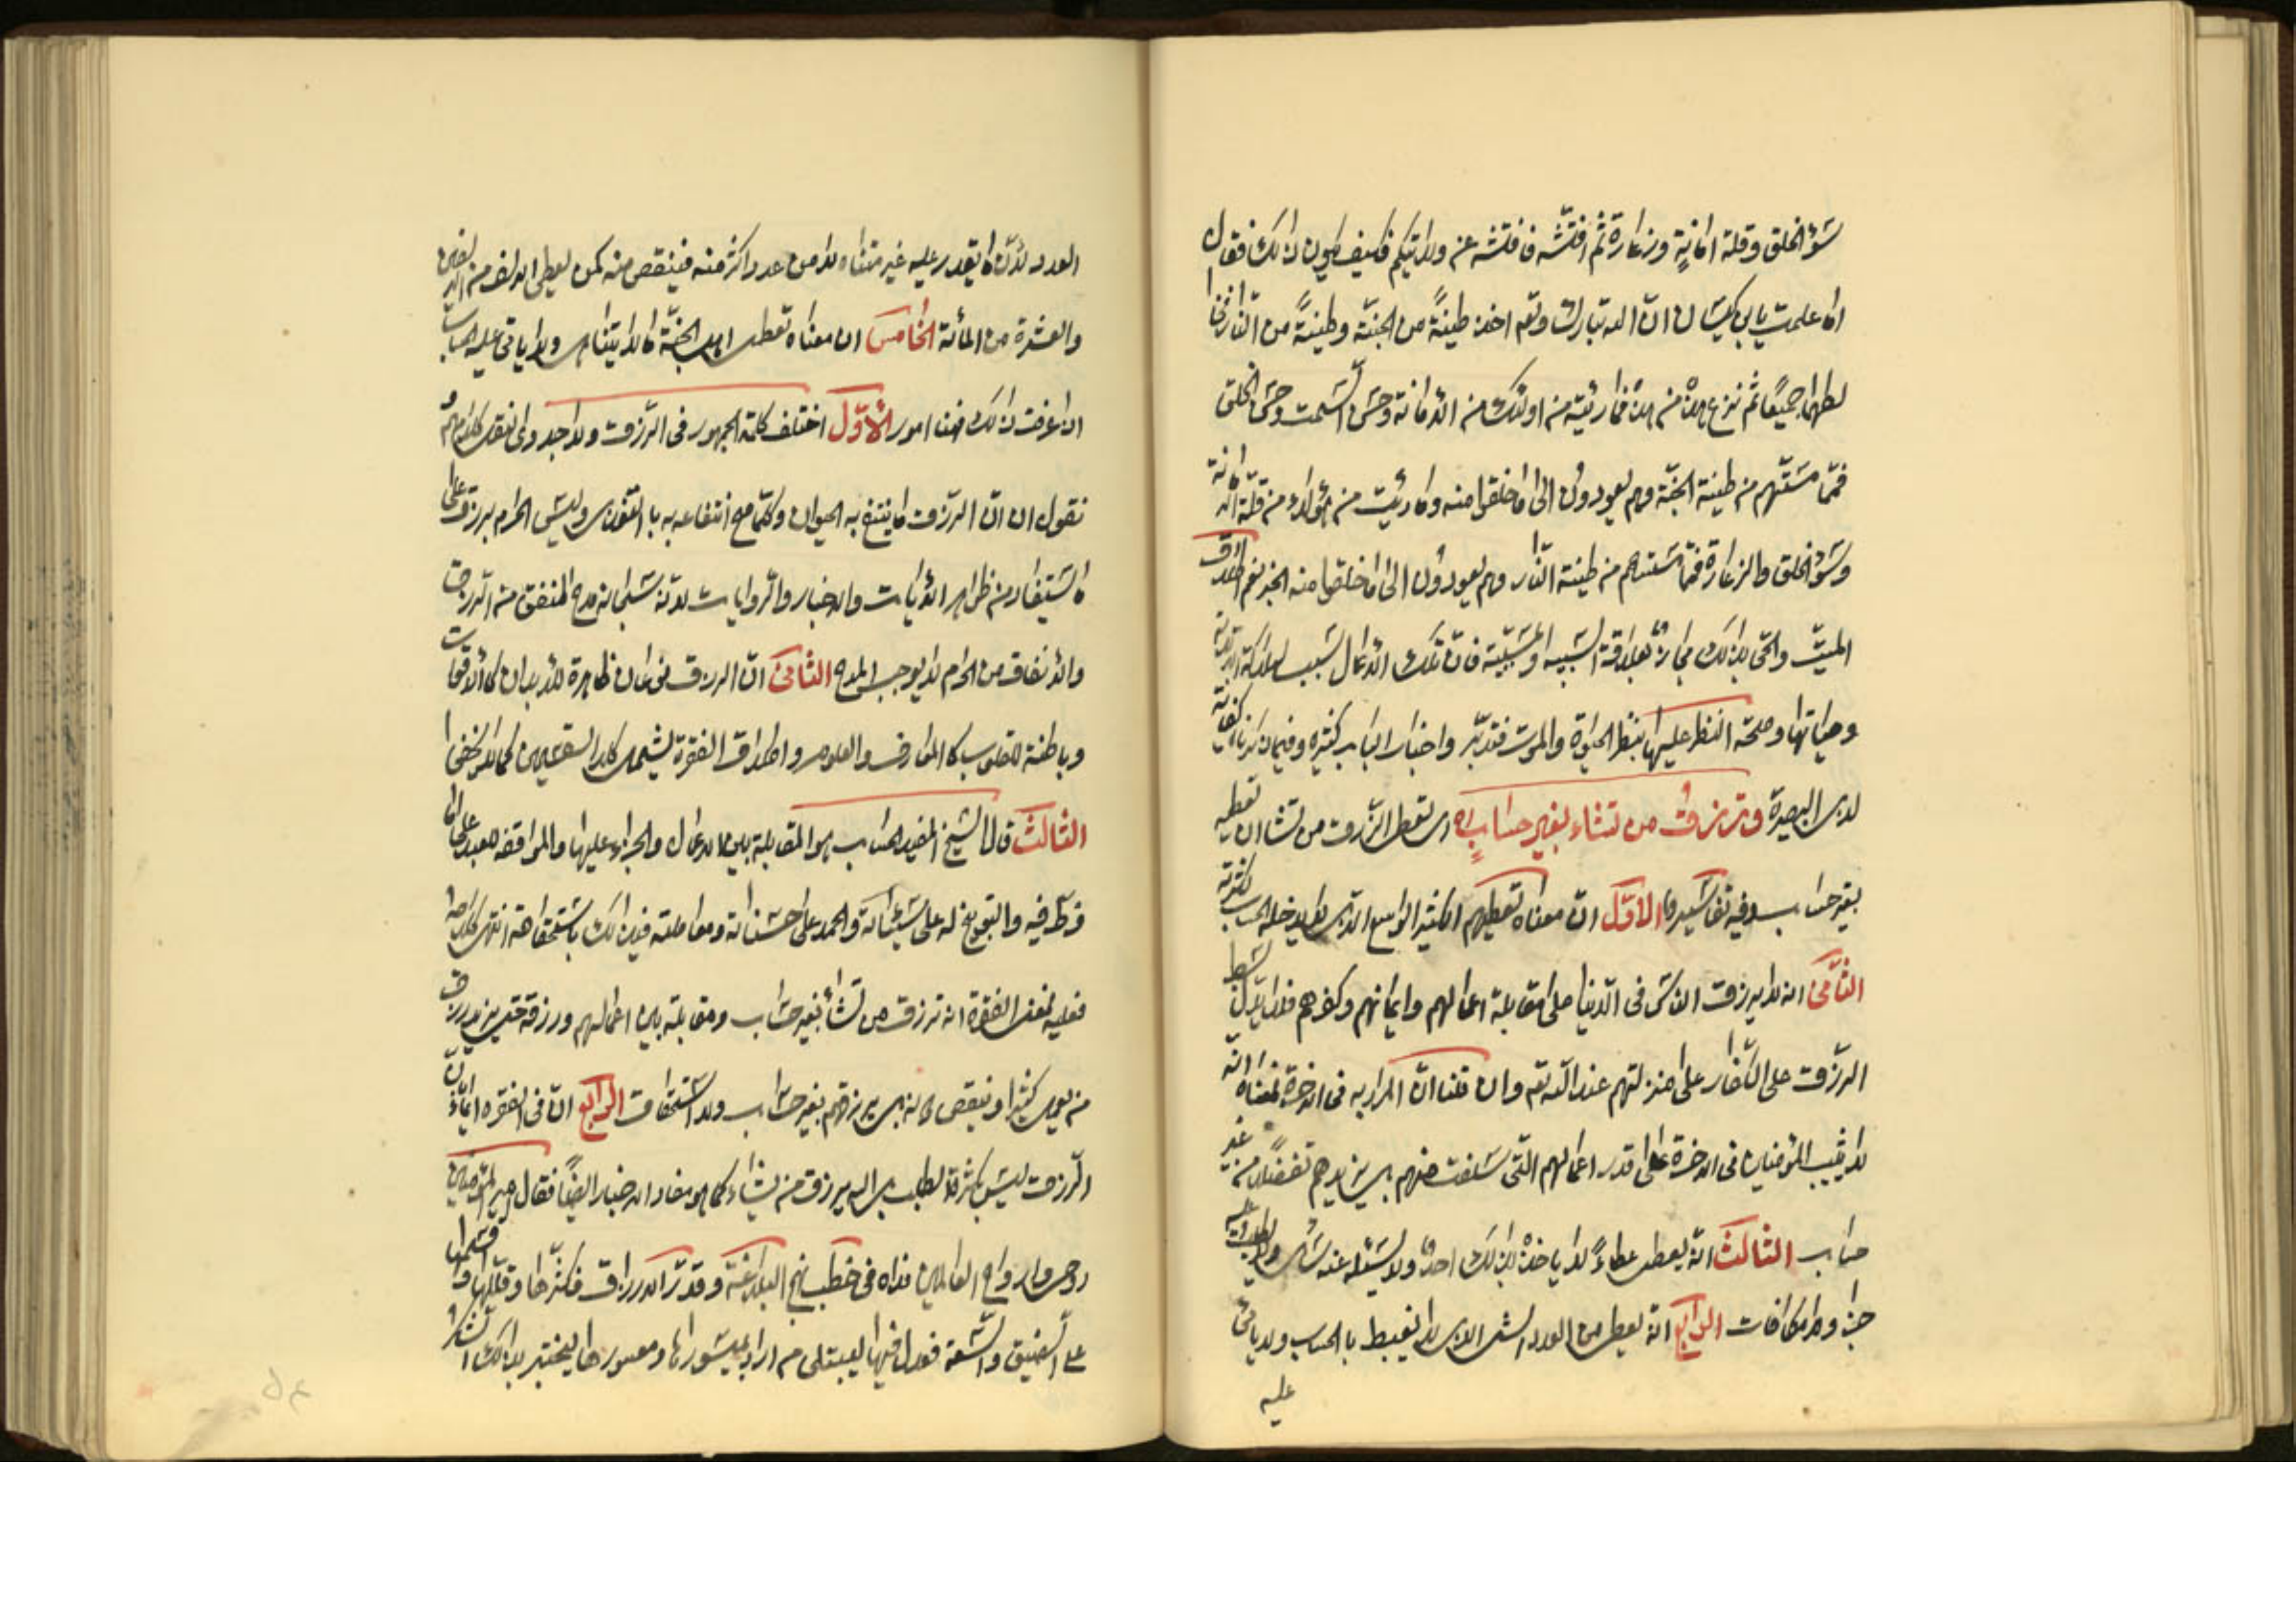 سوء الخلق وقلة امانة وزعارة ثم افتشه فافتشه عن ولايتكم فكيف يكون ذلك فقال
اما علمت يابن كيسان ان الله تبارك وتعالى اخذ طينة من الجنة وطينة من النار فخلطهما
جميعا ثم نزع هذه من هذه فما رئيته من اولئك من الامانة وحسن السمت وحسن الخلق
فمما مستهم من طينة الجنة وهم يعودون الى ما خلقوا منه وما رئيت من هؤلاء من قلة الامانة
وسوء الخلق والزعارة فمما مستهم من طينة النار وهم يعودون الى ما خلقوا منه
الميت والحى بذلك مجازا بعلاقة السببية او المسببية فان تلك الاعمال سبب لهلاكة
وحياتها وصحة النظر عليها بنظر الحيوة والموت فتدبر واخبار الباب كثيرة وفيما ذكرنا كفاية
لذى البصيرة وترزق من تشاء بغير حساب اى تعطى الرزق من تشاء ان تعطيه
بغير حساب وفيه تفاسير الاول ان معناه تعطيهم الكثير الواسع الذى لا يدخله الحساب لكثرته
الثانى انه لا يرزق الناس فى الدنيا على مقابلة اعمالهم وايمانهم وكفرهم فلا يدل بسط
الرزق على الكفار على منزلتهم عند الله تعالى وان قلنا ان المراد به فى الاخرة فمعناه انه
لا يثيب المؤمنين فى الاخرة على قدر اعمالهم التى سلفت منهم بل يزيدهم تفضلا من غير
حساب الثالث انه يعطى عطاء لا ياخذه بذلك احد ولا يسئله عنه سائل ولا يطلب عليه
جزاء ولا مكافات الرابع انه يعطى من العدد الشىء الذى لا يضبط بالحساب ولا ياتى
عليه
العدد لان ما يقدر عليه غير متناه لا من عدد اكثر منه فينقص منه كمن يعطى الالف من الالفين
والعشرة من المائة الخامس ان معناه تعطى اهل الجنة ما لا يتناهى ولا ياتى عليه الحساب
اذا عرفت ذلك فهنا امور الاول اختلف كلمة الجمهور فى الرزق ولا جدوى لنقل كلامهم و
نقول ان الرزق ما ينتفع به الحيوان وكلما مع انتفاعه به بالتغذى وليس الحرام برزق على
ما يستفاد من ظاهر الايات والاخبار والروايات لانه سبحانه مدح المنفق من الرزق
والانفاق من الحرام لا يوجب المدح الثانى ان الرزق نوعان ظاهرة للابدان كالاقوات
وباطنة للقلوب كالمعارف والعلوم واطلاق الفقرة يشمل كلا القسمين كما لا يخفى
الثالث قال الشيخ المفيد الحساب هو المقابلة بين الاعمال والجزاء عليها والموافقة للعبد على ما
فرط فيه والتوبيخ له على سيئاته والحمد على حسناته ومعاملته فى ذلك باستحقاقه انتهى كلامه
فعليه فمعنى الفقرة انه ترزق من تشاء بغير حساب ومقابلة بين اعمالهم ورزقه حتى يزيد رزق
من يعمل كثيرا وينقص بل يرزقهم بغير حساب ولا استحقاق الرابع ان فى الفقرة ايماء ان
الرزق ليس بكثرة الطلب بل الله يرزق من يشاء كما هو مفاد الاخبار ايضا فقال امير المؤمنين
روحى وارواح العالمين فداه فى خطب نهج البلاغة وقدر الارزاق فكثرها وقللها وقسمها
على الضيق والسعة فعدل فيها ليبتلى من اراد بميسورها ومعسورها وليختبر بذلك الشكر